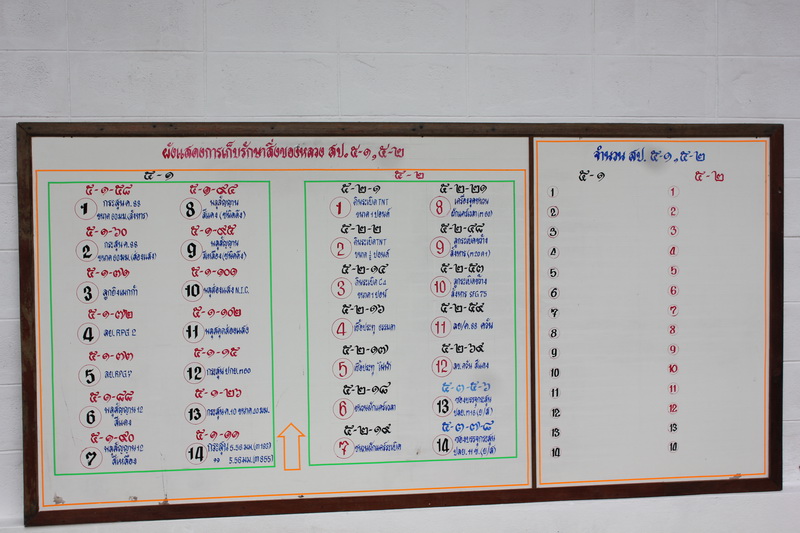 ผังแสดงการเก็บรักษาสิ่งของหลวง สป.๕-๑,๕-๒
๕-๑
๕-๑-๕๘
1 กระสุน ค. 88
ขนาด 60 มม. (สังหาร)
๕-๑-๖๐
2 กระสุน ค. 88
ขนาด 60 มม. (ส่องแสง)
๕-๑-๗๑
3 ลูกยิงเมกก้า
๕-๑-๗๒
4 ลย. RPG 2
๕-๑-๗๓
5 ลย. RPG 7
๕-๑-๘๘
6 พลุสัญญาณ 12
สีแดง
๕-๑-๙๐
7 พลุสัญญาณ 12
สีเหลือง
๕-๑-๙๔
8 พลุสัญญาณ
สีแดง (ชนิดถือ)
๕-๑-๙๕
9 พลุสัญญาณ
สีเหลือง (ชนิดถือ)
๕-๑-๑๐๑
10 พลุส่องแสง N.I.C.
๕-๑-๑๐๒
11 พลุสะดุดส่องแสง
๕-๑-๑๕
12 กระสุน ปกย. ๓๑๐
๕-๑-๒๖
13
๕-๑-๑๑
14 กระสุน 5.56 มม. (M 193)
" 5.56 มม. (M 855)
๕-๒
๕-๒-๑
1 ดินระเบิด TNT
ขนาด 1 ปอนด์
๕-๒-๒
2 ดินระเบิด TNT
ขนาด ½ ปอนด์
๕-๒-๑๔
3 ดินระเบิด C4
๕-๒-๑๖
4 เชื้อปะทุ ธรรมดา
๕-๒-๑๗
5 เชื้อปะทุ ไฟฟ้า
๕-๒-๑๘
6 ชนวนฝักแคเวลา
๕-๒-๑๙
7 ชนวนฝักแคระเบิด
๕-๒-๒๑
8 เครื่องจุดชนวน
ฝักแคเวลา (M 60)
๕-๒-๔๘
9 ลูกระเบิดขว้าง
๕-๒-๕๓
10 ลูกระเบิดขว้าง
สังหาร SFG 75
๕-๒-๕๙
11 ลย/ค. 88 ควัน
๕-๒-๖๙
12 ลย. ควัน สีแดง
๕-๓-๕-๖
13 ซองบรรจุกระสุน
ปลย. M 16
๕-๓-๗-๘
14 ซองบรรจุกระสุน
จำนวน สป. ๕-๑,๕-๒
๕-๑
1
2
3
4
5
6
7
8
9
10
11
12
13
14
๕-๒
1
2
3
4
5
6
7
8
9
10
11
12
13
14